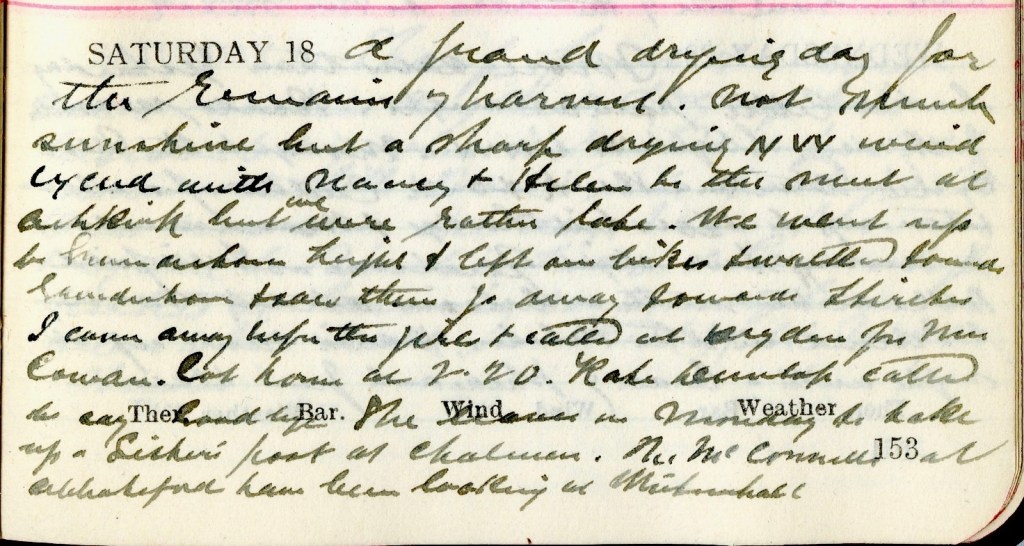 SATURDAY 18 A grand drying day for
the remains of harvest. Not much
sunshine but a sharp drying NW wind
cycled with Nancy & Helen to the meet at
Ashkirk but we were rather late. We went up
to height & left our bikes & walked towards
& saw them go away towards
I came away before the & called at for Mrs
Cowan. Got home at 2.20. Kate Dunlop called
to say Goodbye She leaves on Monday to take
Ther. Bar. Wind Weather
up a Sister's post at . The McConnells at
153
Abbotsford have been looking at